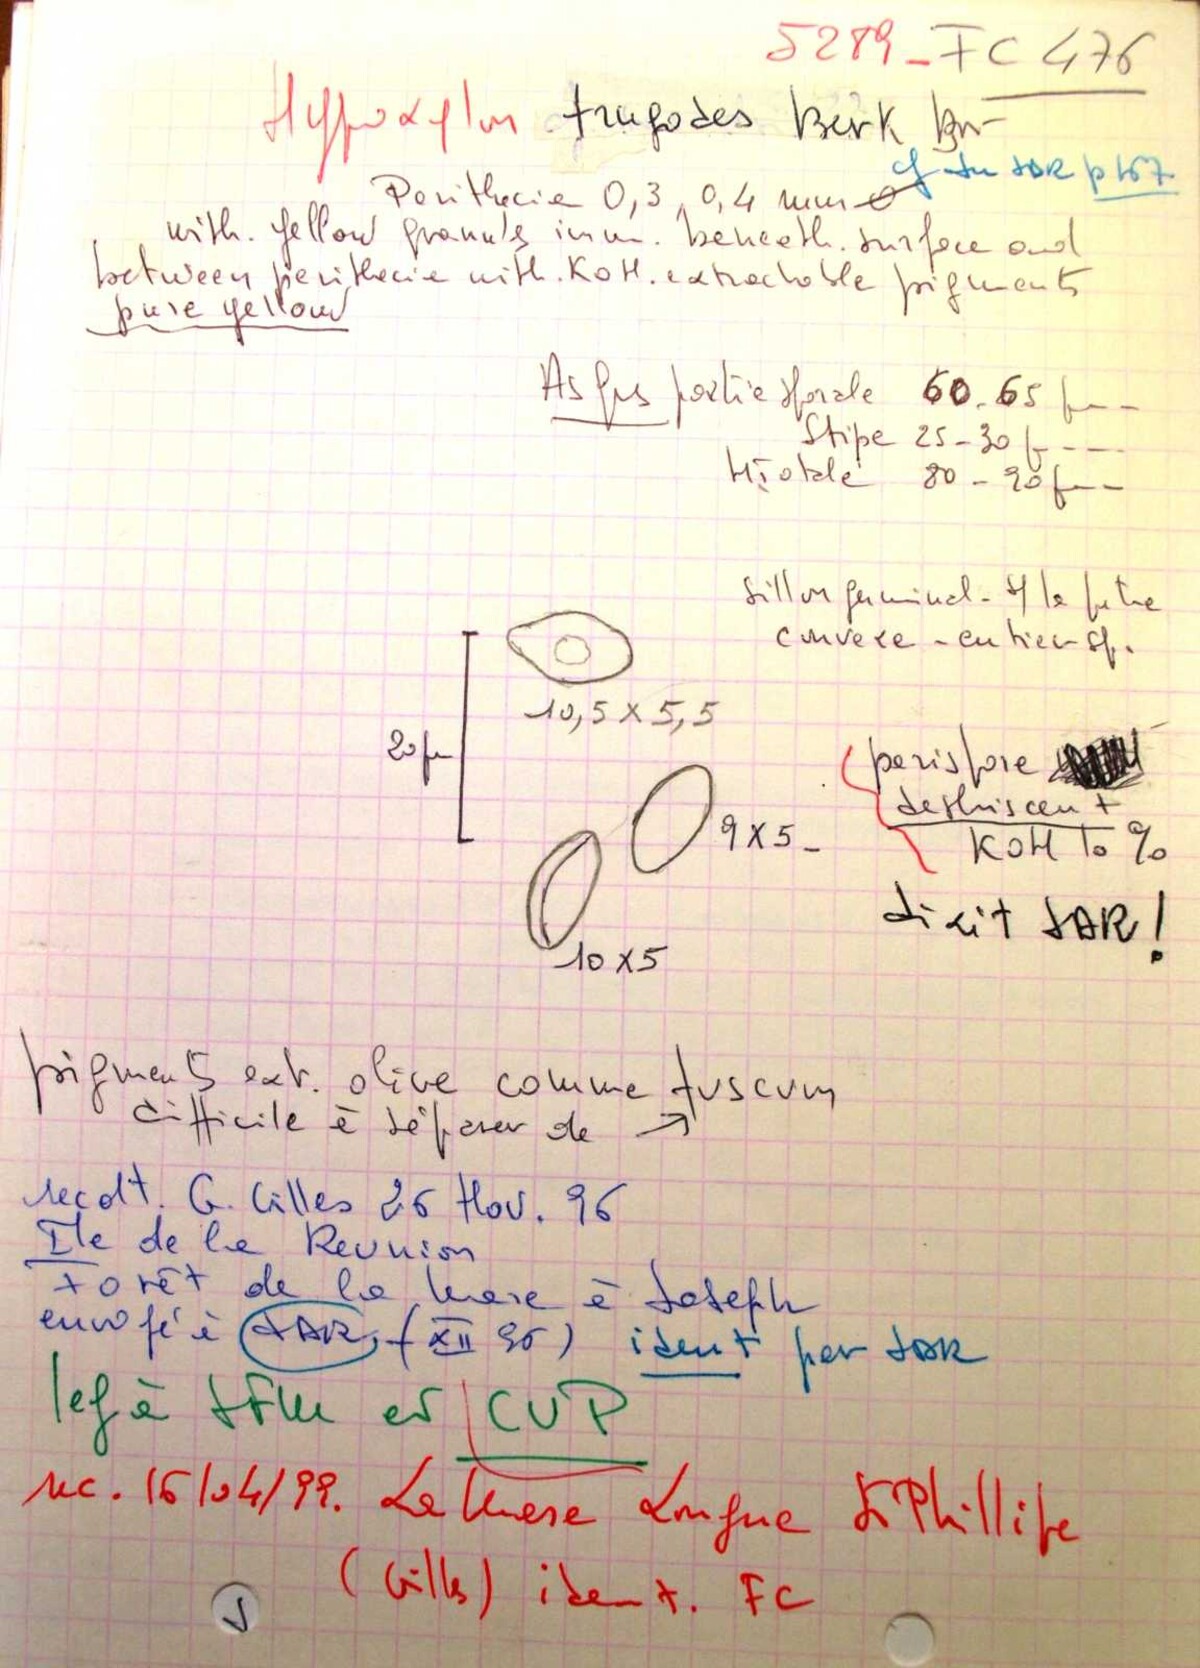 5289 - FC 476
Hypoxylon fragodes Berk Br
cf in JDR p 167
Perithecia 0,3 0,4 mm Ø
with. yellow granuls imm. beneath. surface and
between perithecia with. KOH. extractable pigments
pure yellow
Asques partie sporale 60-65 µm
Stipe 25-30 µm
H. totale 80-90 µm
sillon germinal - s/ la
convexe - entier sp.
10,5 X 5,5
20 µm
9 X 5 -
10 X 5
perispore
dehiscent
KOH 10 %
dixit JDR!
pigments ext. olive comme fuscum
difficile à séparer de ↗
recolt. G. Gilles 26 Nov. 96
Ile de la Reunion
Forêt de la Mare à Joseph
envoyé à JDR, (XII 96) ident par JDR
leg à JFM et CUP
rec. 16/04/99. La Mare Longue St Phillipe
(Gilles) ident. FC